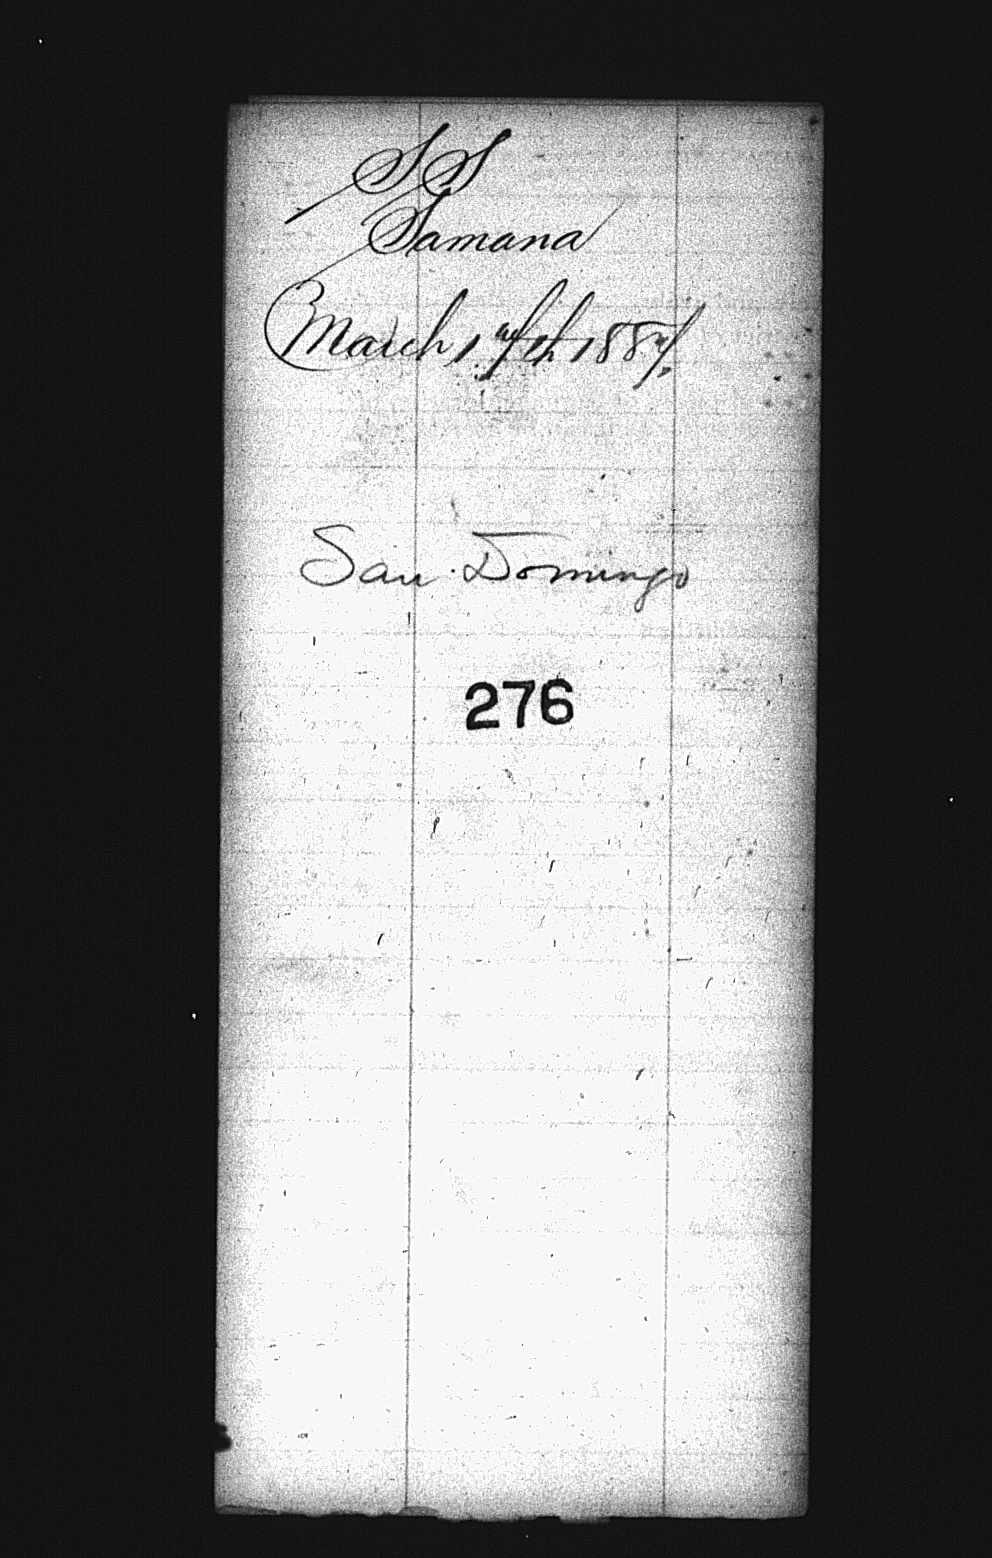 SS
Samana
March 17th 1887.
San Domingo
276